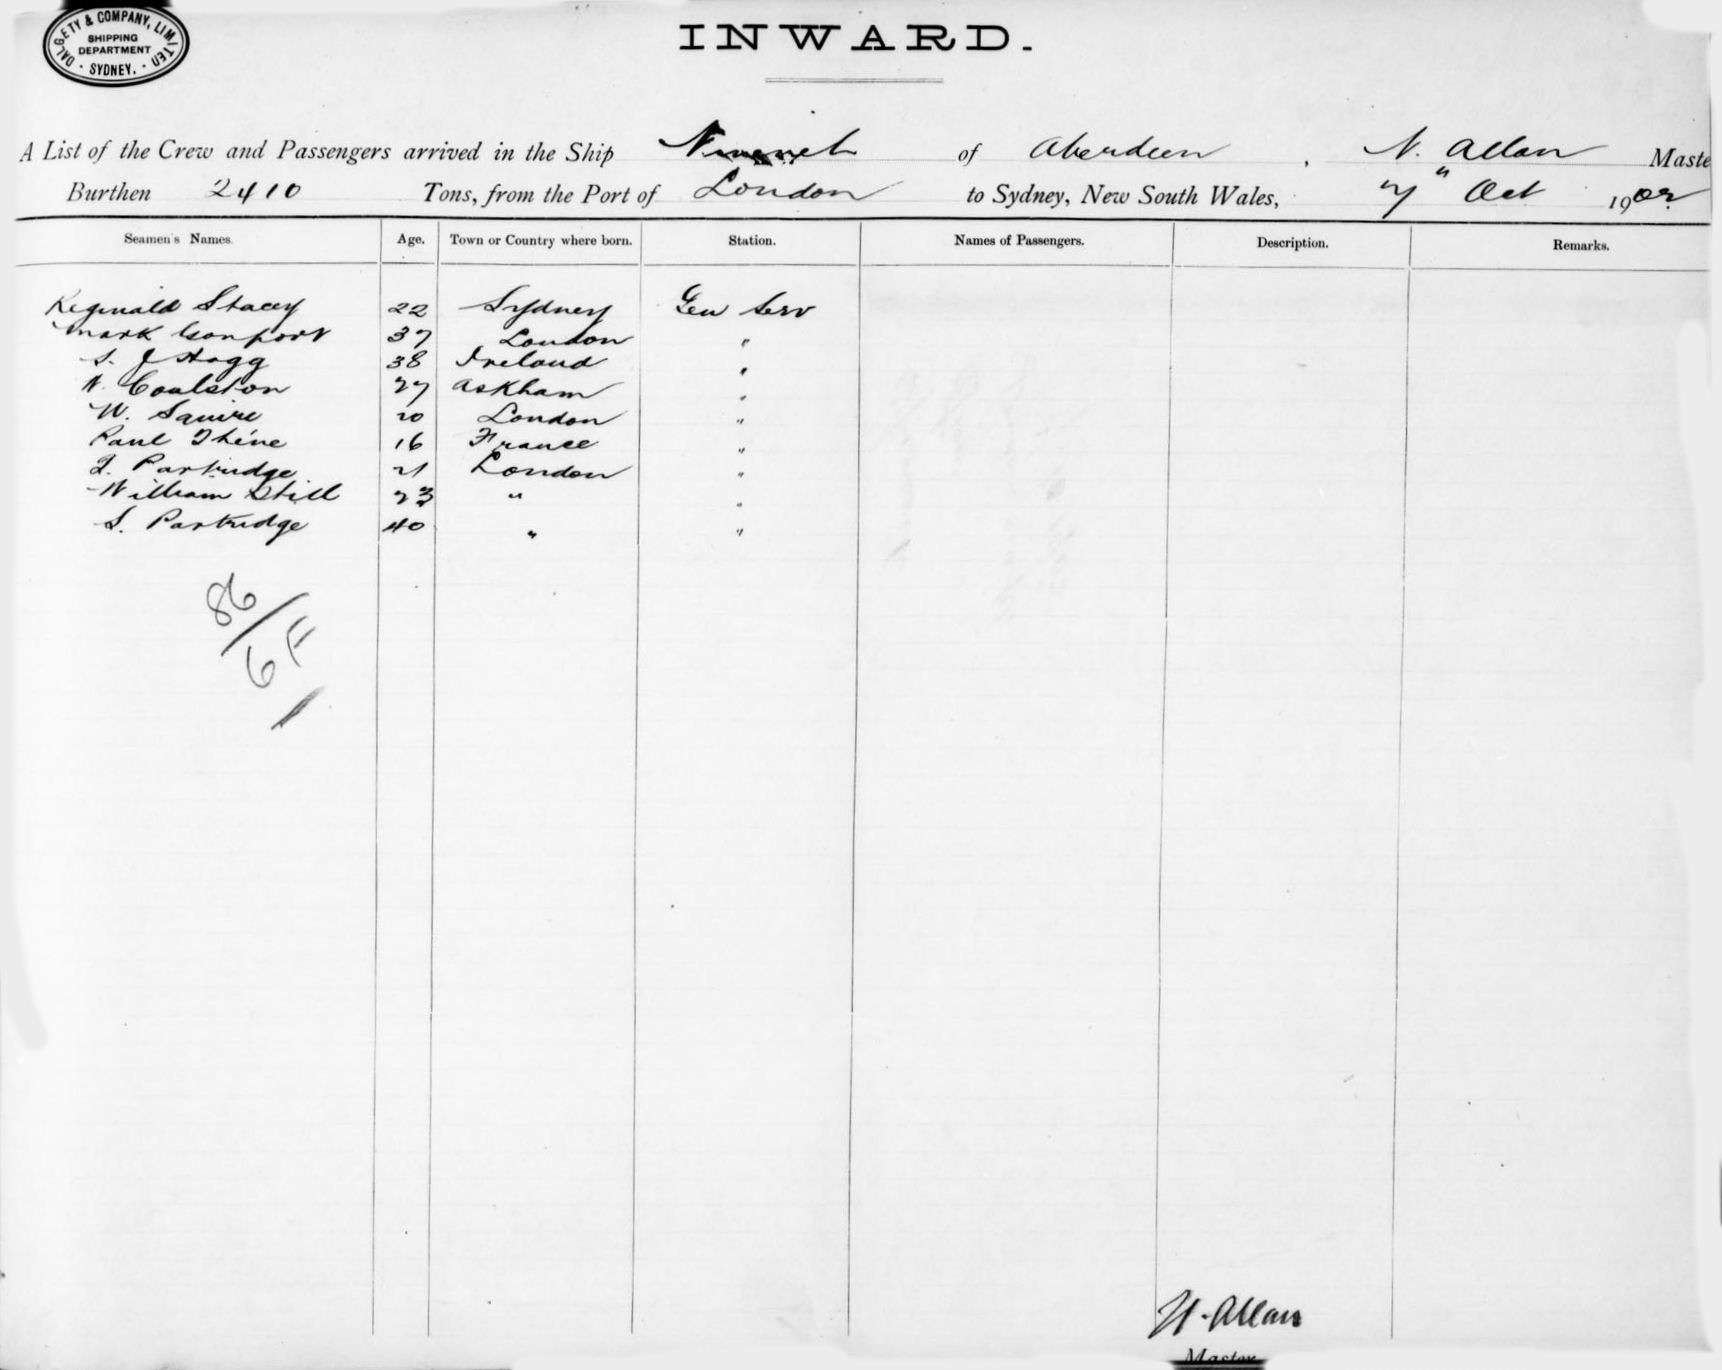 DALGETY & COMPANY, LIMITED
SHIPPING
DEPARTMENT
SYDNEY.
INWARD.
A List of the Crew and Passengers arrived in the Ship of Aberdeen, N. Allan Maste
Burthen 2410 Tons, from the Port of London to Sydney, New South Wales, 7" Oct 1902
Seamen's Names. Age. Town or Country where born. Station. Names of Passengers. Description. Remarks.
Reginald Stacey 22 Sydney Gen Serv
Mark 37 London "
S. J Hogg 38 Ireland "
N. Coulston 27 Askham "
W. Squire 20 London "
Paul Théne 16 France "
Partridge 21 London "
William Still 23 " "
S. Partridge 40 " "
86/6F
Allan
Master